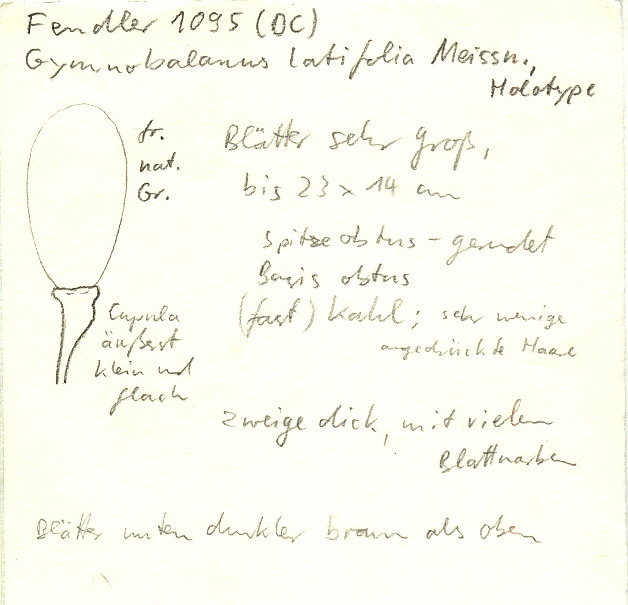 Fendler 1095 (DC)
Gymnobalanus latifolia Meissn.,
Holotype
fr.
nat.
Gr.
Blätter sehr groß,
bis 23 x 14 cm
Spitze obtus - gerundet
Basis obtus
(fast) kahl; sehr wenige
angedrückte Haare
Cupula
äußerst
klein und
flach
Zweige dick, mit vielen
Blattnarben
Blätter unten dunkler braun als oben